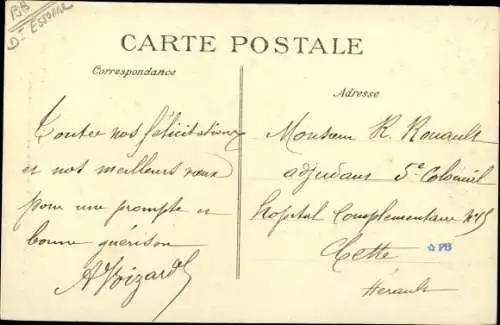 BB
Dt Essonne
CARTE POSTALE
Correspondance
Adresse
Toutes nos félicitations
et nos meilleurs vœux
pour une prompte et
bonne guérison
Monsieur R. Rouault
adjudant 5e Colonial
hopital Complementaire N°
Cette
☆PB
Hérault